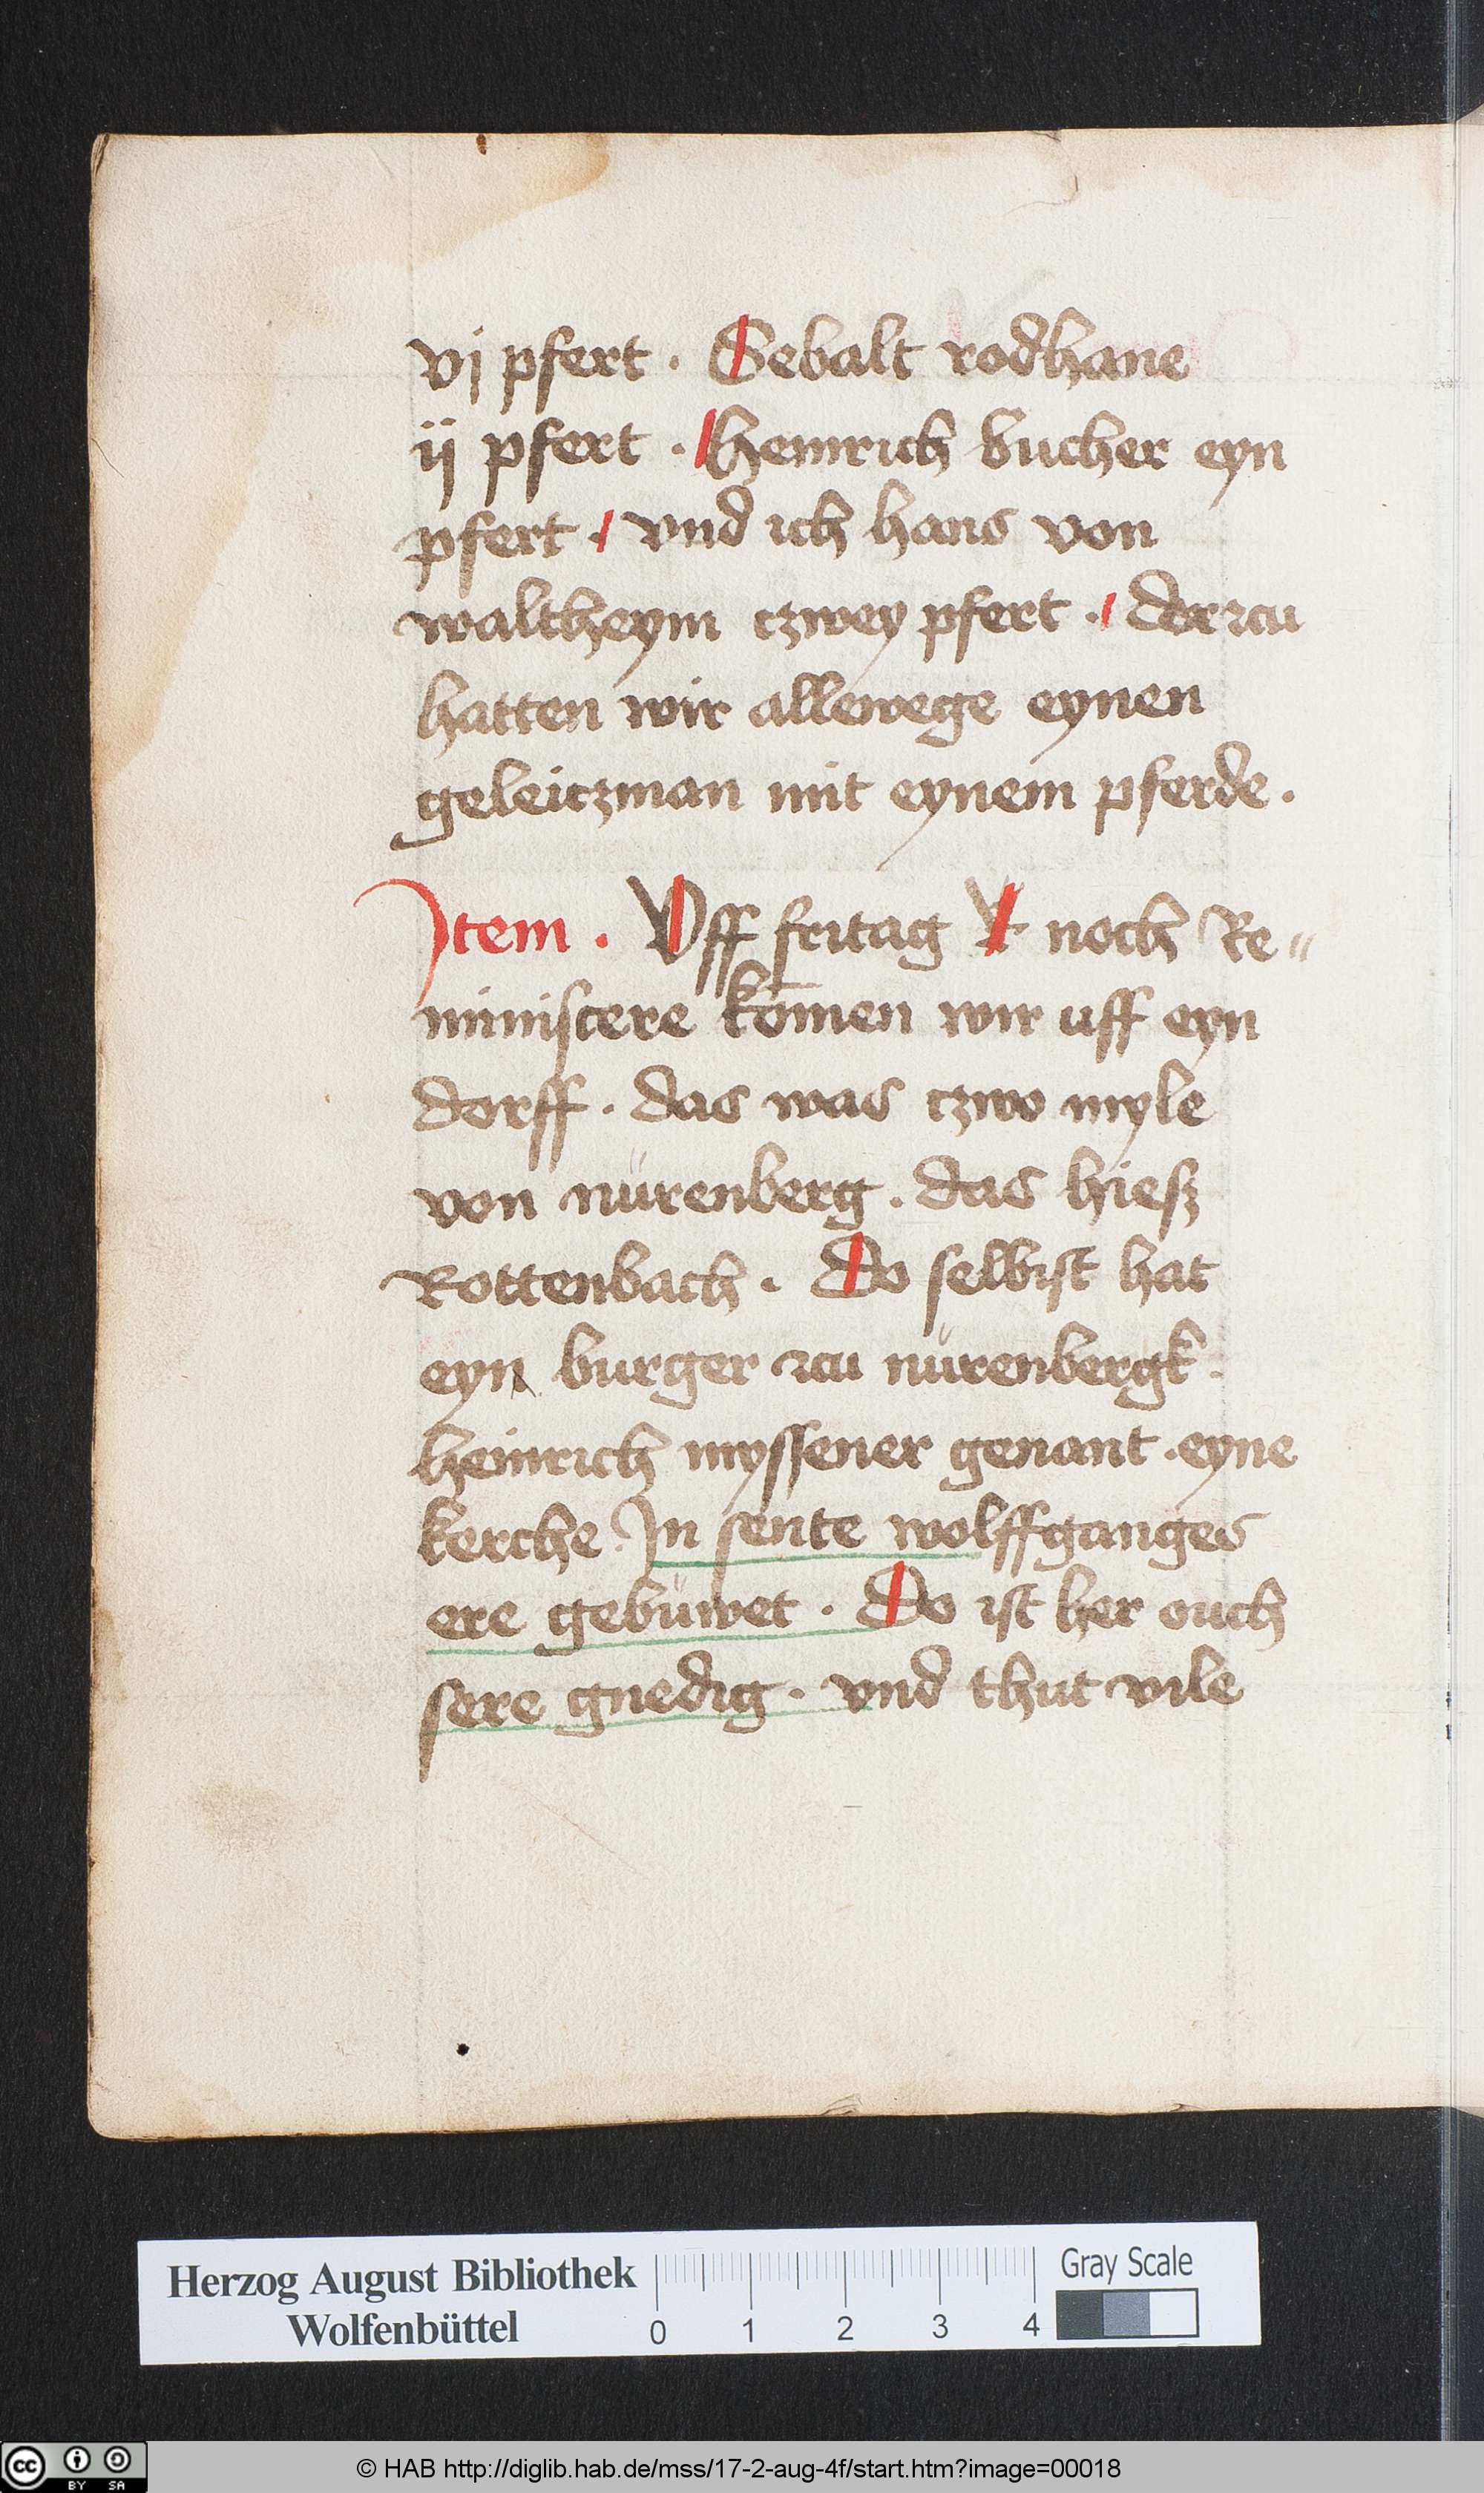 vj pfert · Sebalt rodhane
ij pfert · heinrich bucher eyn
pfert · vnd ich hans von
waltheym czwey pfert · dor zcu
hatten wir allewege eynen
geleitzman mit eynem pferde ·
Item · Vff fritag noch Re〃
miniscere ko̅men wir uff eyn
dorff · das was czwo myle
von nürenberg · das hiesz
Rottenbach · Do selbist hat
eyn burger zcu nürenbergk ·
heinrich myssener genant · eyne
kerche In sente wolffganges
ere gebuͤwet · Do ist her ouch
sere gnedig · vnd thut vile
Herzog August Bibliothek
Wolfenbüttel
0 1 2 3 4
Gray Scale
cc BY SA
© HAB http://diglib.hab.de/mss/17-2-aug-4f/start.htm?image=00018